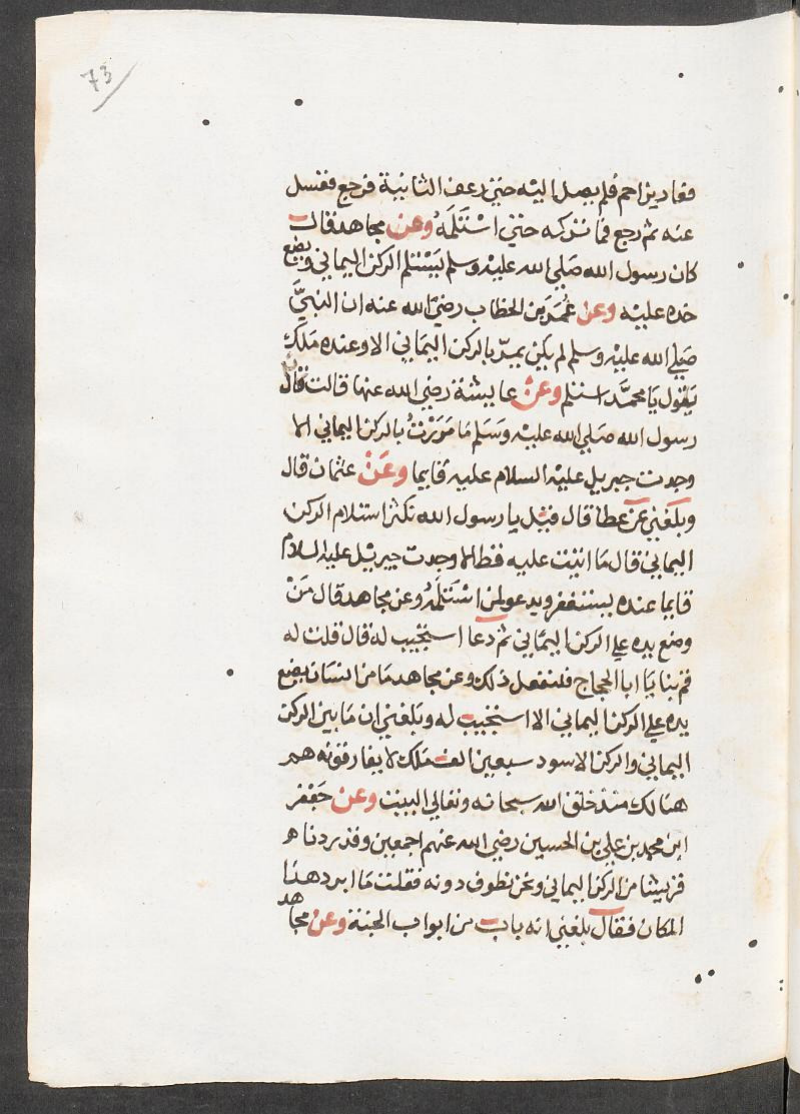 73
فعاد يزاحم فلم يصل اليه حتى رعف الثانية فرجع فغسل
عنه ثم رجع فما تركه حتى استلمه وعن مجاهد قال
كان رسول الله صلي الله عليه وسلم يستلم الركن اليماني ويضع
خده عليه وعن عمر بن الخطاب رضي الله عنه ان النبي
صلي الله عليه وسلم لم يكن يمر بالركن اليماني الا وعنده ملك
يقول يا محمد استلم وعن عايشة رضي الله عنها قالت قال
رسول الله صلي الله عليه وسلم ما مررت بالركن اليماني الا
وجدت جبريل عليه السلام عليه قايما وعن عثمان قال
وبلغني عن عطا قال قيل يا رسول الله تكثر استلام الركن
اليماني قال ما اتيت عليه قط الا وجدت جبريل عليه السلام
قايما عنده يستغفر ويدعو لمن استلمه وعن مجاهد قال من
وضع يده علي الركن اليماني ثم دعا استجيب له قال قلت له
قم بنا يا ابا الحجاج فلنفعل ذلك وعن مجاهد ما من انسان يضع
يده علي الركن اليماني الا استجيب له وبلغني ان ما بين الركن
اليماني والركن الاسود سبعين الف ملك لا يفارقونه هم
هنالك منذ خلق الله سبحانه وتعالي البيت وعن جعفر
ابن محمد بن علي بن الحسين رضي الله عنهم اجمعين وقد
قريبا من الركن اليماني ونحن نطوف دونه فقلت ما ابرد هذا
المكان فقال بلغني انه باب من ابواب الجنة وعن مجاهد